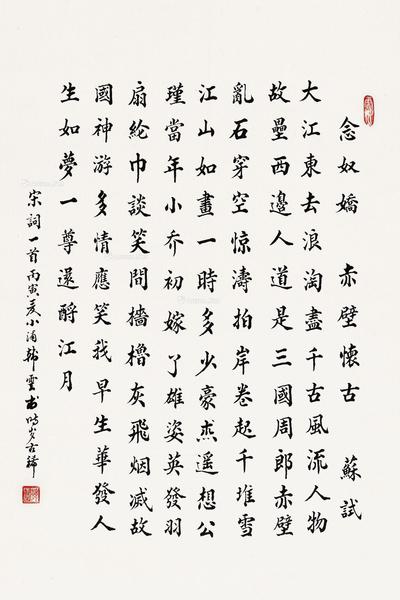 念奴嬌 赤壁懷古 蘇試
大江東去浪淘盡千古風流人物
故壘西邊人道是三國周郎赤壁
亂石穿空惊濤拍岸卷起千堆雪
江山如畫一時多少豪杰遥想公
瑾當年小乔初嫁了雄姿英發羽
扇綸巾談笑間檣櫓灰飛烟滅故
國神游多情應笑我早生華發人
生如夢一尊還酹江月
宋詞一首丙寅夏小浦韓雲書時岁古稀